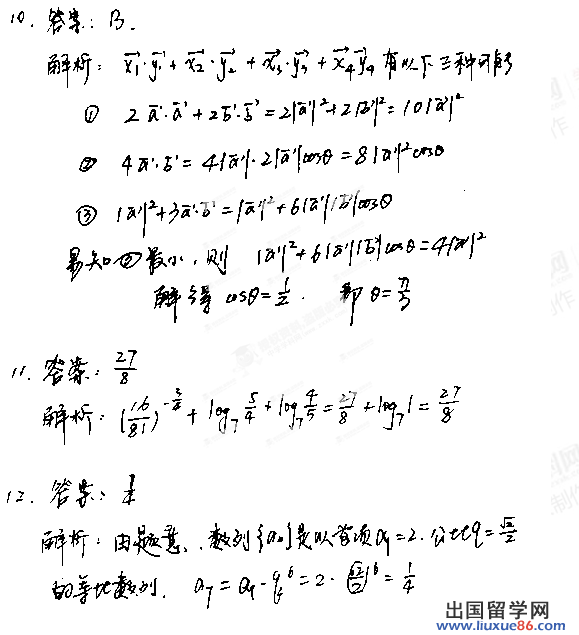 10. 答案: B.
解析: x₁·y₁+x₂·y₂+x₃·y₃+x₄y₄ 有以下三种可能
① 2a·a+2b·b=2|a|²+2|b|²=10|a|²
② 4a·b=4|a|·2|a|cosθ=8|a|²cosθ
③ |a|²+3a·b=|a|²+6|a||b|cosθ
易知②最小, 则 |a|²+6|a||b|cosθ=4|a|²
解得 cosθ=1/2. 即 θ=π/3
11. 答案: 27/8
解析: (16/81)^(-3/4)+log₇ 5/4+log₇ 4/5=27/8+log₇1=27/8
12. 答案: 1/4
解析: 由题意, 数列{aₙ}是以首项a₁=2. 公比q=√2/2
的等比数列. a₇=a₁·q⁶=2·(√2/2)⁶=1/4
出国留学网
www.liuxue86.com